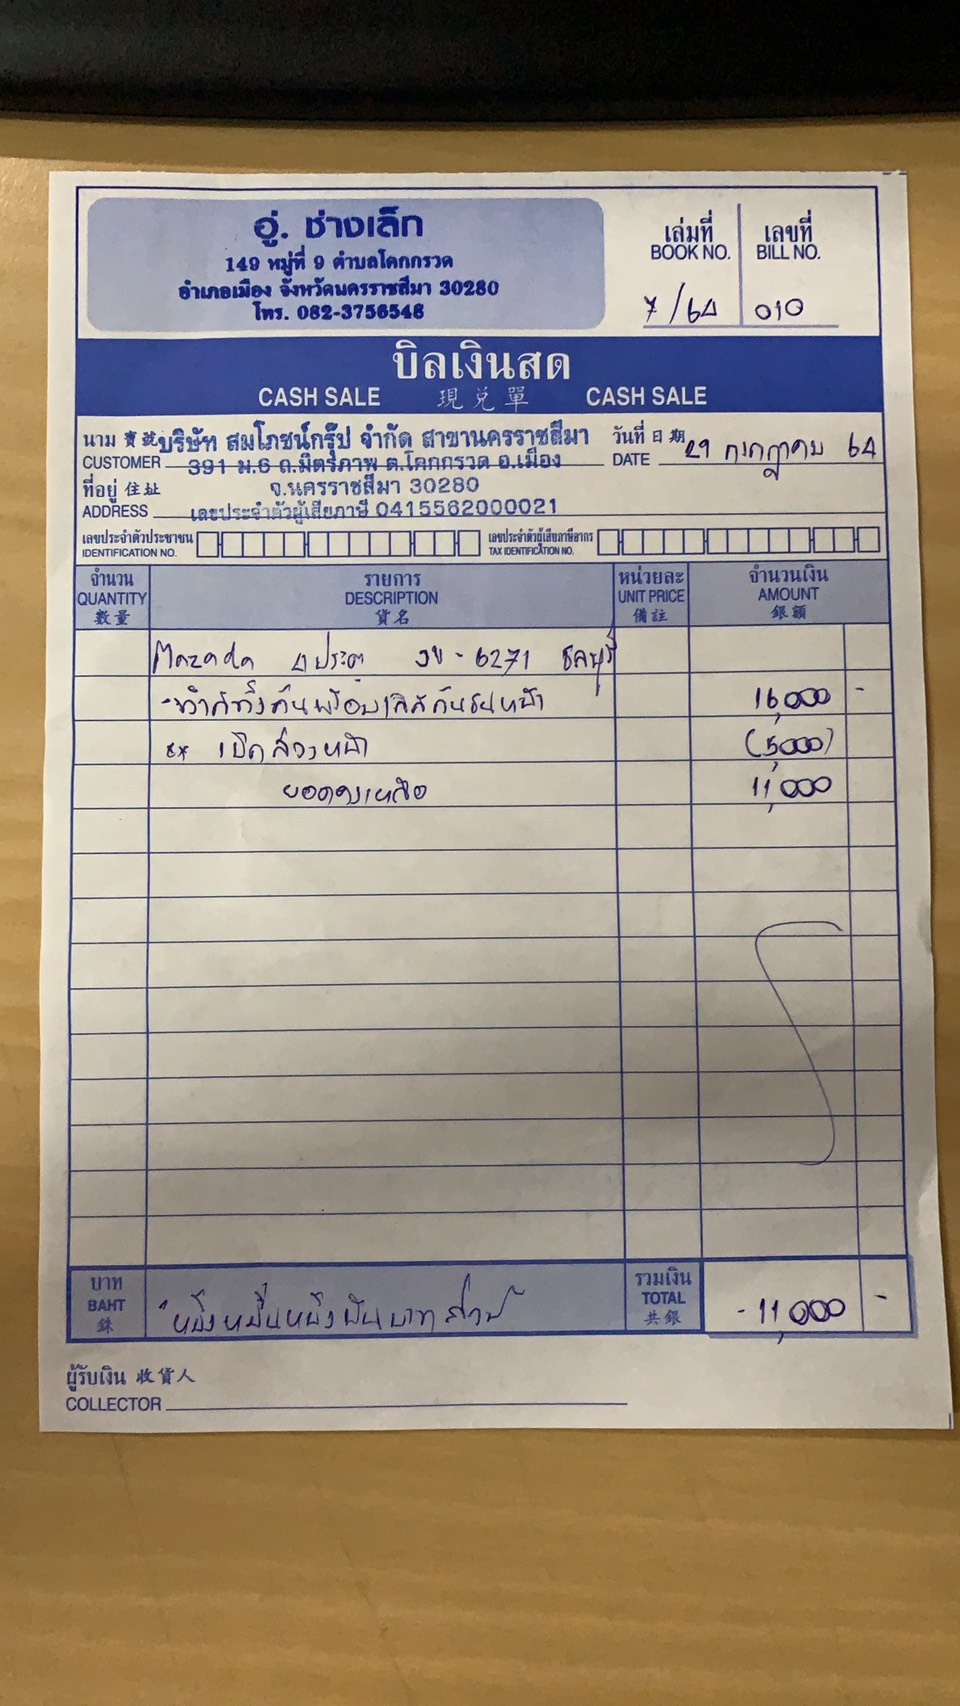 อู่. ช่างเล็ก
149 หมู่ที่ 9 ตำบลโคกกรวด
อำเภอเมือง จังหวัดนครราชสีมา 30280
โทร. 082-3756548
เล่มที่ เลขที่
BOOK NO. BILL NO.
7/64 010
บิลเงินสด
CASH SALE 現兑單 CASH SALE
นาม 賣號 บริษัท สมโภชน์กรุ๊ป จำกัด สาขานครราชสีมา วันที่ 日期
CUSTOMER 391 ม.6 ถ.มิตรภาพ ต.โคกกรวด อ.เมือง DATE 29 กรกฎาคม 64
ที่อยู่ 住址 จ.นครราชสีมา 30280
ADDRESS เลขประจำตัวผู้เสียภาษี 0415562000021
เลขประจำตัวประชาชน เลขประจำตัวผู้เสียภาษีอากร
IDENTIFICATION NO. TAX IDENTIFICATION NO.
จำนวน รายการ หน่วยละ จำนวนเงิน
QUANTITY DESCRIPTION UNIT PRICE AMOUNT
數量 貨名 備註 銀額
Mazada 4ประตู 6271 ชลบุรี
-ทำสีทั้งคันพร้อม 16,000 -
** เบิกล่วงหน้า (5,000)
ยอดคงเหลือ 11,000
บาท รวมเงิน
BAHT หนึ่งหมื่นหนึ่งพันบาทถ้วน TOTAL -11,000 -
銖 共銀
ผู้รับเงิน 收貨人
COLLECTOR